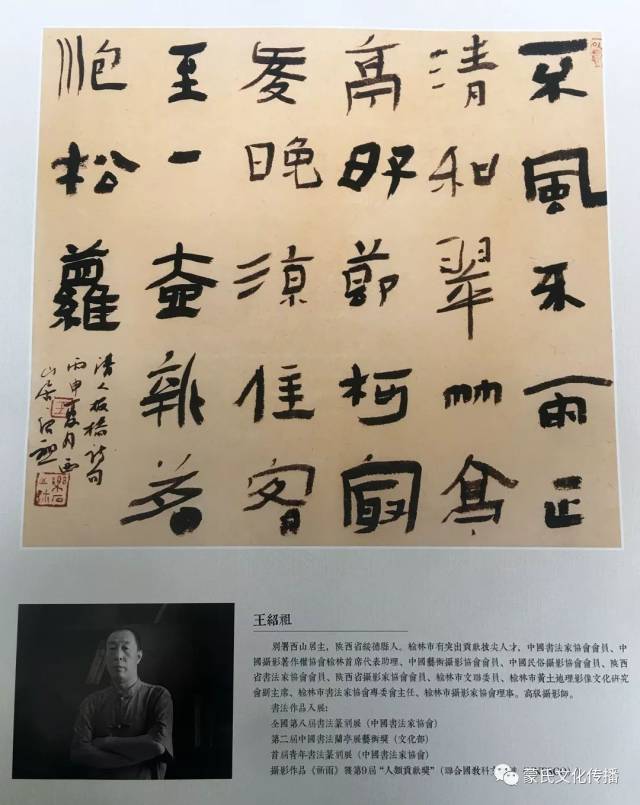 不風不雨正
清和翠竹亭
亭好節柯最
愛晚涼佳客
至一壺新茗
泡松蘿
清人板橋詩句
丙申夏月西
山居紹祖
王紹祖
別署西山居主，陝西省綏德縣人。榆林市有突出貢獻拔尖人才，中國書法家協會會員、中
國攝影著作權協會榆林首席代表助理、中國藝術攝影協會會員、中國民俗攝影協會會員、陝西
省書法家協會會員、陝西省攝影家協會會員、榆林市文聯委員、榆林市黃土地理影像文化研究
會副主席、榆林市書法家協會專委會主任、榆林市攝影家協會理事。高級攝影師。
書法作品入展：
全國第八屆書法篆刻展（中國書法家協會）
第二屆中國書法蘭亭展藝術獎（文化部）
首屆青年書法篆刻展（中國書法家協會）
攝影作品《祈雨》獲第9屆“人類貢獻獎”（聯合國教科文
蒙民文化传播